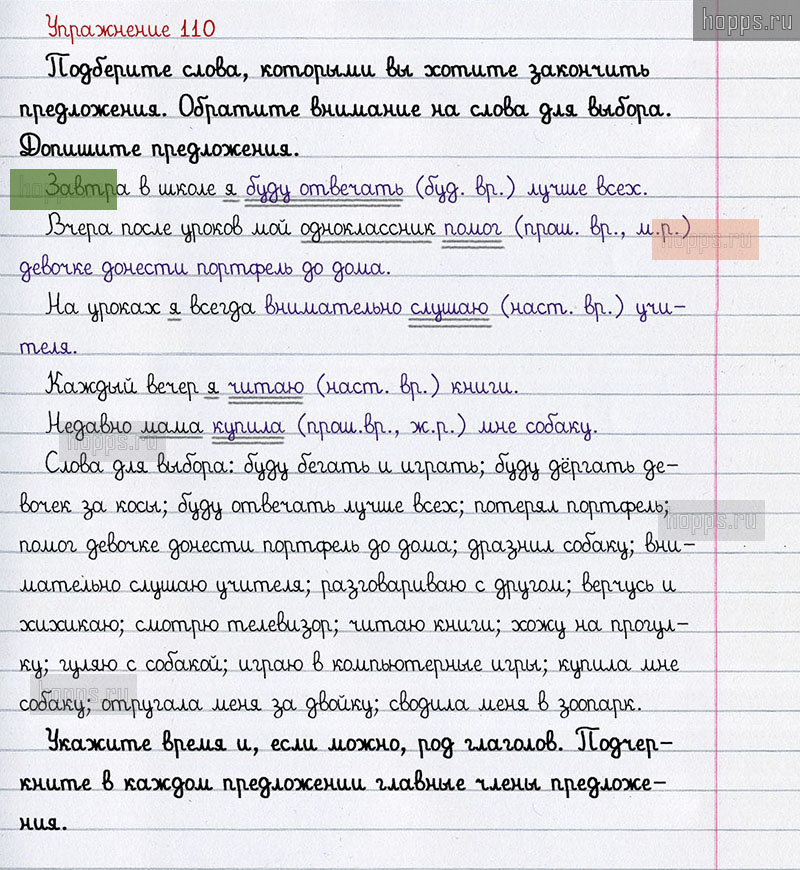 hopps.ru
Упражнение 110
Подберите слова, которыми вы хотите закончить
предложения. Обратите внимание на слова для выбора.
Допишите предложения.
Завтра в школе я буду отвечать (буд. вр.) лучше всех.
Вчера после уроков мой одноклассник помог (прош. вр., м.р.)
девочке донести портфель до дома.
На уроках я всегда внимательно слушаю (наст. вр.) учи-
теля.
Каждый вечер я читаю (наст. вр.) книги.
Недавно мама купила (прош.вр., ж.р.) мне собаку.
Слова для выбора: буду бегать и играть; буду дёргать де-
вочек за косы; буду отвечать лучше всех; потерял портфель;
помог девочке донести портфель до дома; дразнил собаку; вни-
мательно слушаю учителя; разговариваю с другом; верчусь и
хихикаю; смотрю телевизор; читаю книги; хожу на прогул-
ку; гуляю с собакой; играю в компьютерные игры; купила мне
собаку; отругала меня за двойку; сводила меня в зоопарк.
Укажите время и, если можно, род глаголов. Подчер-
кните в каждом предложении главные члены предложе-
ния.
hopps.ru
hopps.ru
hopps.ru
hopps.ru
hopps.ru